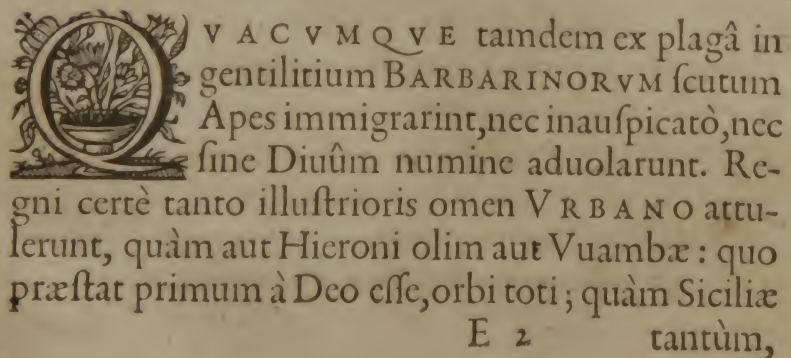 QVACVMQVE tamdem ex plagâ in
gentilitium BARBARINORVM ſcutum
Apes immigrarint, nec inauſpicatò, nec
ſine Diuûm numine aduolarunt. Re-
gni certè tanto illuſtrioris omen VRBANO attu-
lerunt, quàm aut Hieroni olim aut Vuambæ: quo
præſtat primum à Deo eſſe, orbi toti; quàm Siciliæ
E 2 tantùm,